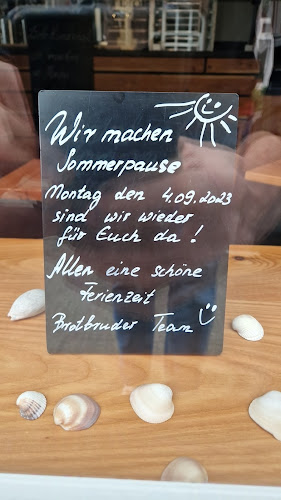 Wir machen
Sommerpause
Montag den 4.09.2023
sind wir wieder
für Euch da!
Allen eine schöne
Ferienzeit
Brotbruder Team